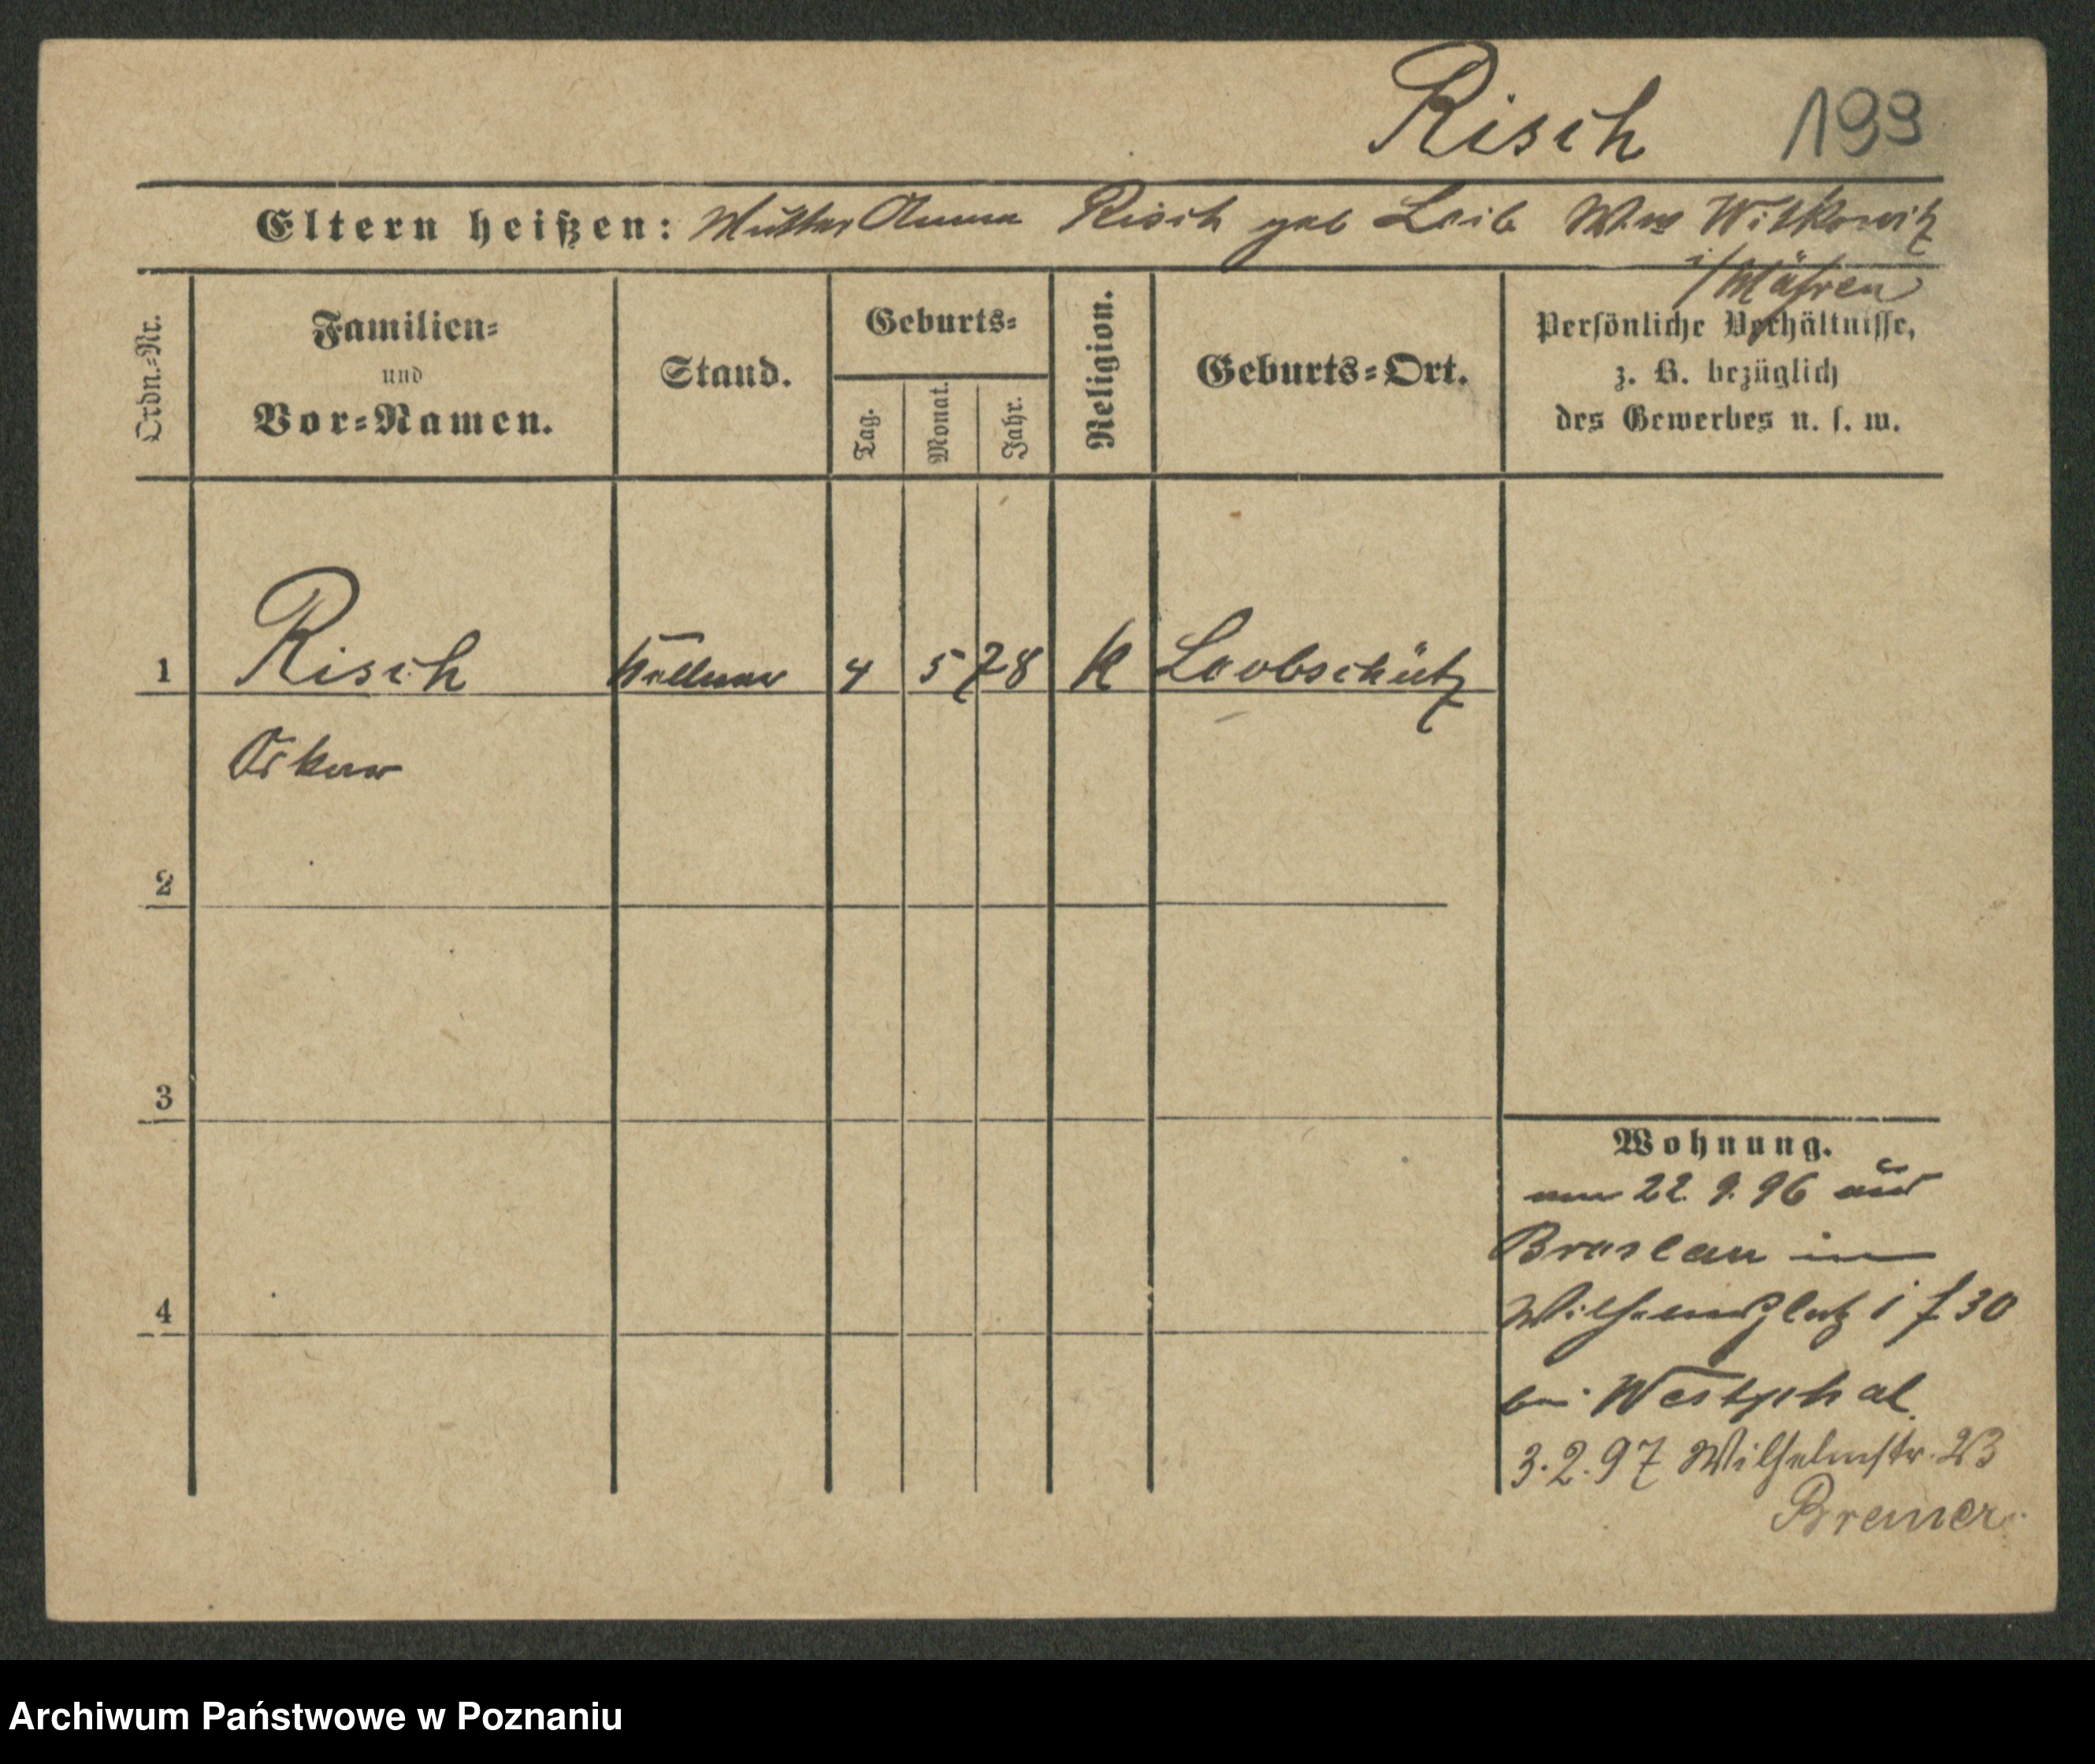 Risch 199
Eltern heißen: Mutter Anna Risch geb Leib Witkowitz
i/Mähren
Ordn.-Nr.
Familien-
und
Vor-Namen.
Stand.
Geburts-
Tag.
Monat.
Jahr.
Religion.
Geburts-Ort.
Persönliche Verhältnisse,
z. B. bezüglich
des Gewerbes u. s. w.
1 Risch Kellner 4 5 78 K Leobschütz
Oskar
2
3
4
Wohnung.
am 22. 9. 96 aus
Breslau in
Wilhelmsplatz 30
bei Westphal.
3.2.97 Wilhelmstr. 23
Bremer.
Archiwum Państwowe w Poznaniu